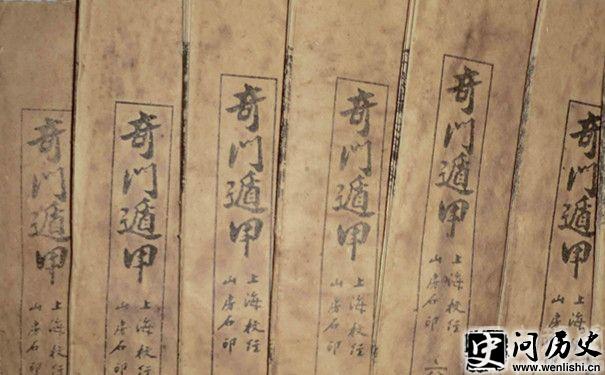 奇门遁甲
上海校经
山房石印
奇门遁甲
上海校经
山房石印
奇门遁甲
上海校经
山房石印
奇门遁甲
上海校经
山房石印
奇门遁甲
上海校经
山房石印
六
奇门遁甲
上海
山房
史 问历史
www.wenlishi.cn